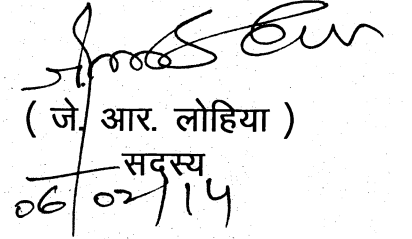 ( जे. आर. लोहिया )
सदस्य
06/02/14